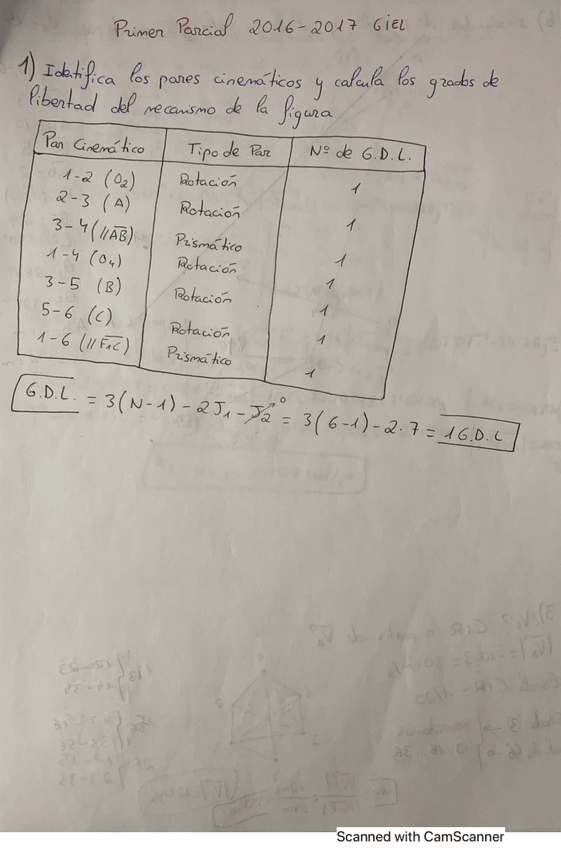 Primer Parcial 2016-2017 GIEL
1) Identifica los pares cinemáticos y calcula los grados de
libertad del mecanismo de la figura
Par Cinemático Tipo de Par Nº de G.D.L.
1-2 (O2) Rotación 1
2-3 (A) Rotación 1
3-4 (//AB) Prismático 1
1-4 (O4) Rotación 1
3-5 (B) Rotación 1
5-6 (C) Rotación 1
1-6 (//F1C) Prismático 1
G.D.L. = 3(N-1) - 2J1 - J2 0 = 3(6-1) - 2·7 = 1 G.D.L
Scanned with CamScanner